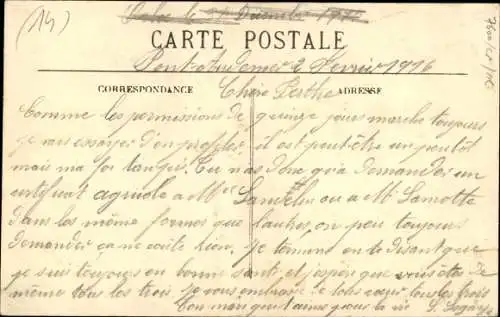 (14)
le 31 Décembre 1915
CARTE POSTALE
Pont-Audemer 2 Fevrier 1916
CORRESPONDANCE Chère Berthe ADRESSE
Comme les permissions de quinze jours marche toujours
je vais essayer d'en profiter il est peut-être un peu tôt
mais ma foi tanpis. Tu nas donc qu'à demander un
certificat agricole a Mr ou a Mr Lamotte
dans les même formes que lautres, on peu toujours
demander ça ne coute rien. Je termine en te disant que
je suis toujours en bonne santé et j'espère que vous etes de
même tous les trois je vous embrasse de tous coeur tous les trois
Ton mari qui t'aimes pour la vie